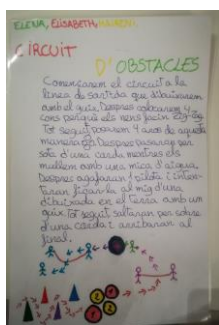 ELENA, ELISABETH, MAIREM.
CIRCUIT
D'OBSTACLES
Començarem el circuit a la
linea de sortida que dibuixarem
amb el guix. Despres colocarem 4
cons perquè els nens facin zig-zag
Tot seguit posarem 4 aros de aquesta
manera. Despres passaran per
sota d'una corda mentres els
mullem amb una mica d'aigua.
Despres agafaran 1 pilota i inten-
taran ficar-la al mig d'una
dibuixada en el terra amb un
guix. Tot seguit saltaran per sobre
d'una corda i arribaran al
final.